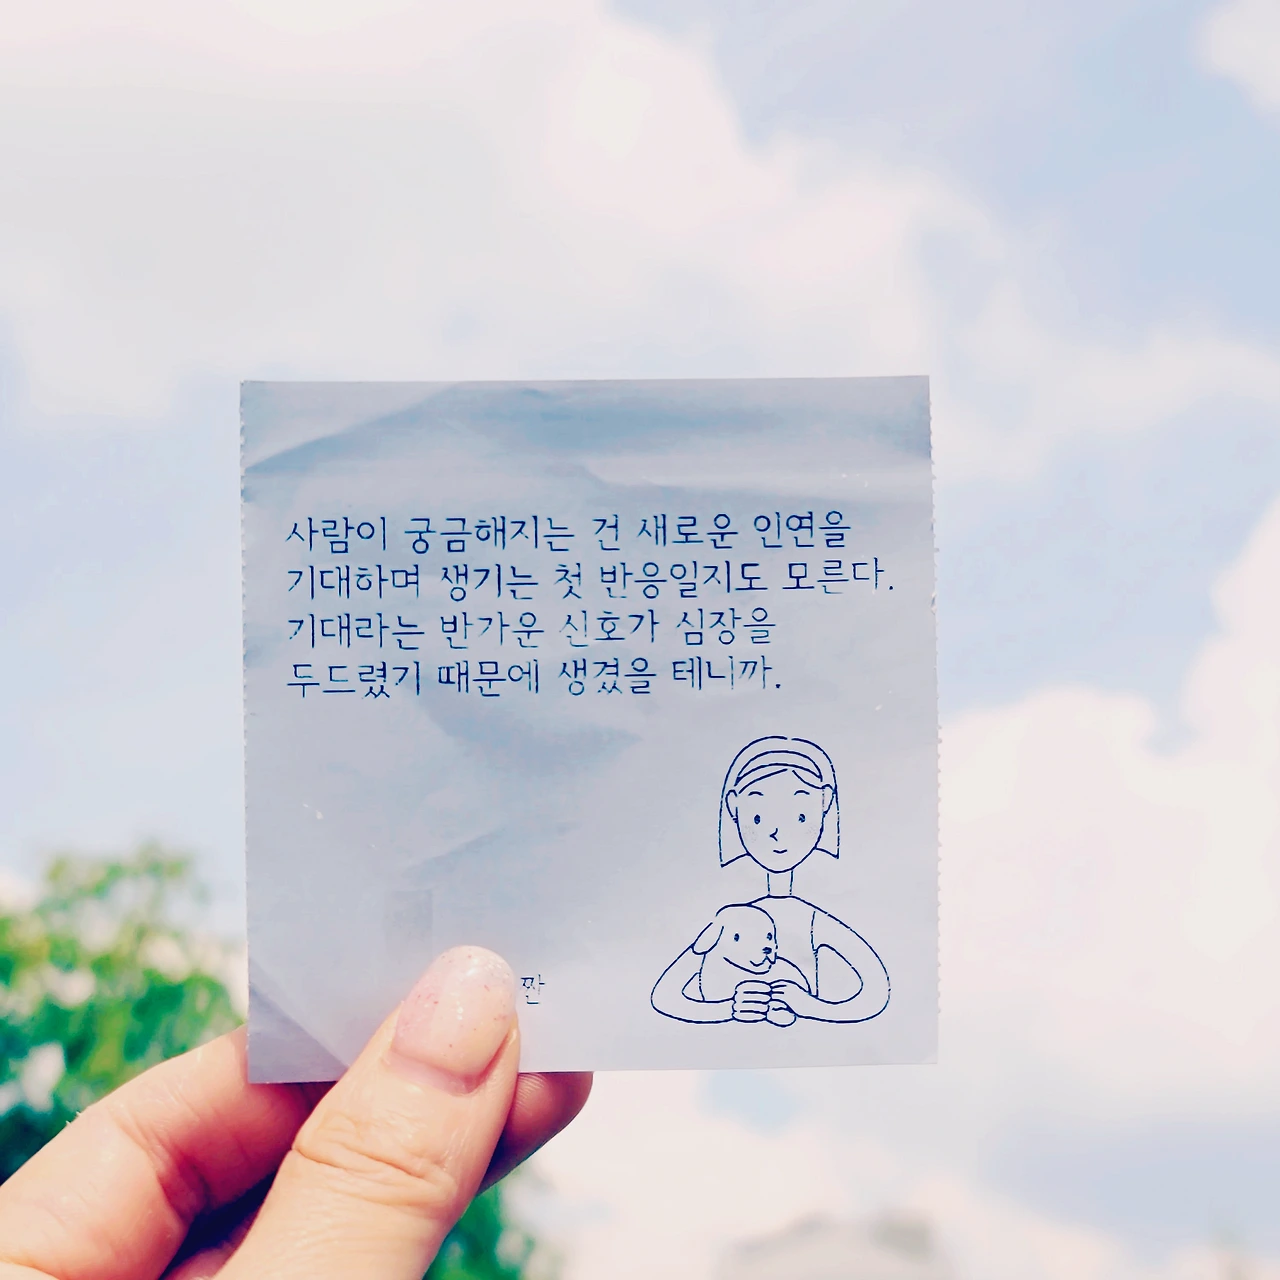 사람이 궁금해지는 건 새로운 인연을
기대하며 생기는 첫 반응일지도 모른다.
기대라는 반가운 신호가 심장을
두드렸기 때문에 생겼을 테니까.